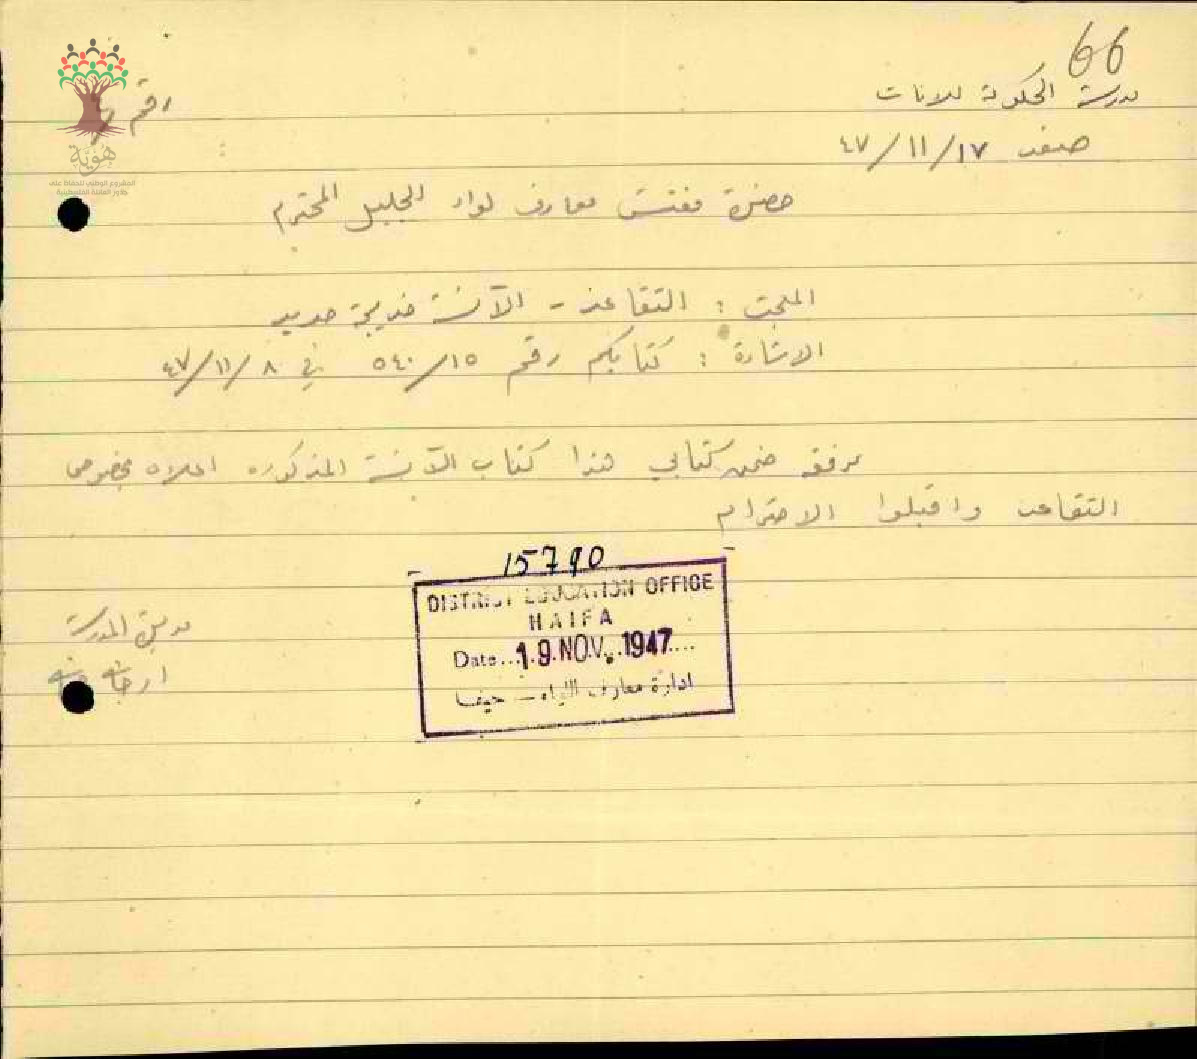 66
مدرسة الحكومة للاناث
رقم
صفد ١٧/١١/٤٧
هَوِيَّة
المشروع الوطني للحفاظ على
جذور العائلة الفلسطينية
حضرة مفتش معارف لواء الجليل المحترم
المبحث : التقاعد - الآنسة خديجة حديد
الاشارة : كتابكم رقم ٥٤٠/١٥ في ٤٧/١١/٨
مرفقه ضمن كتابي هذا كتاب الآنسة المذكوره اعلاه بخصوص
التقاعد واقبلوا الاحترام
15790
DISTRICT EDUCATION OFFICE
HAIFA
Date...19.NOV.1947....
ادارة معارف اللواء – حيفا
مديرة المدرسة